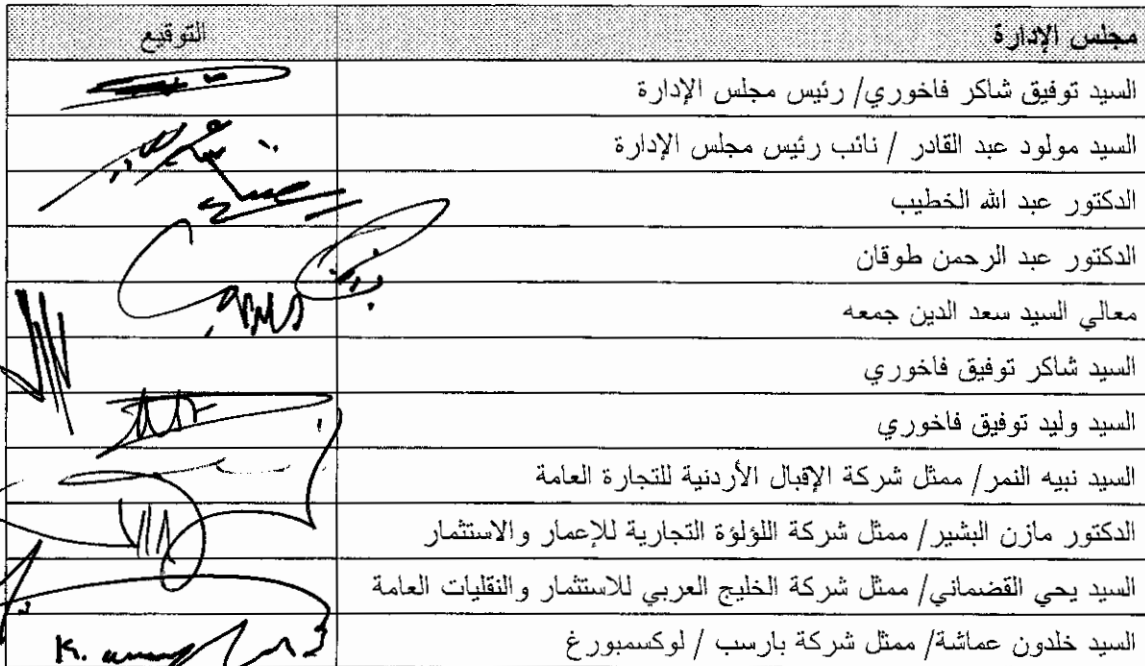 مجلس الإدارة التوقيع
السيد توفيق شاكر فاخوري/ رئيس مجلس الإدارة
السيد مولود عبد القادر / نائب رئيس مجلس الإدارة
الدكتور عبد الله الخطيب
الدكتور عبد الرحمن طوقان
معالي السيد سعد الدين جمعه
السيد شاكر توفيق فاخوري
السيد وليد توفيق فاخوري
السيد نبيه النمر/ ممثل شركة الإقبال الأردنية للتجارة العامة
الدكتور مازن البشير/ ممثل شركة اللؤلؤة التجارية للإعمار والاستثمار
السيد يحي القضماني/ ممثل شركة الخليج العربي للاستثمار والنقليات العامة
السيد خلدون عماشة/ ممثل شركة بارسب / لوكسمبورغ